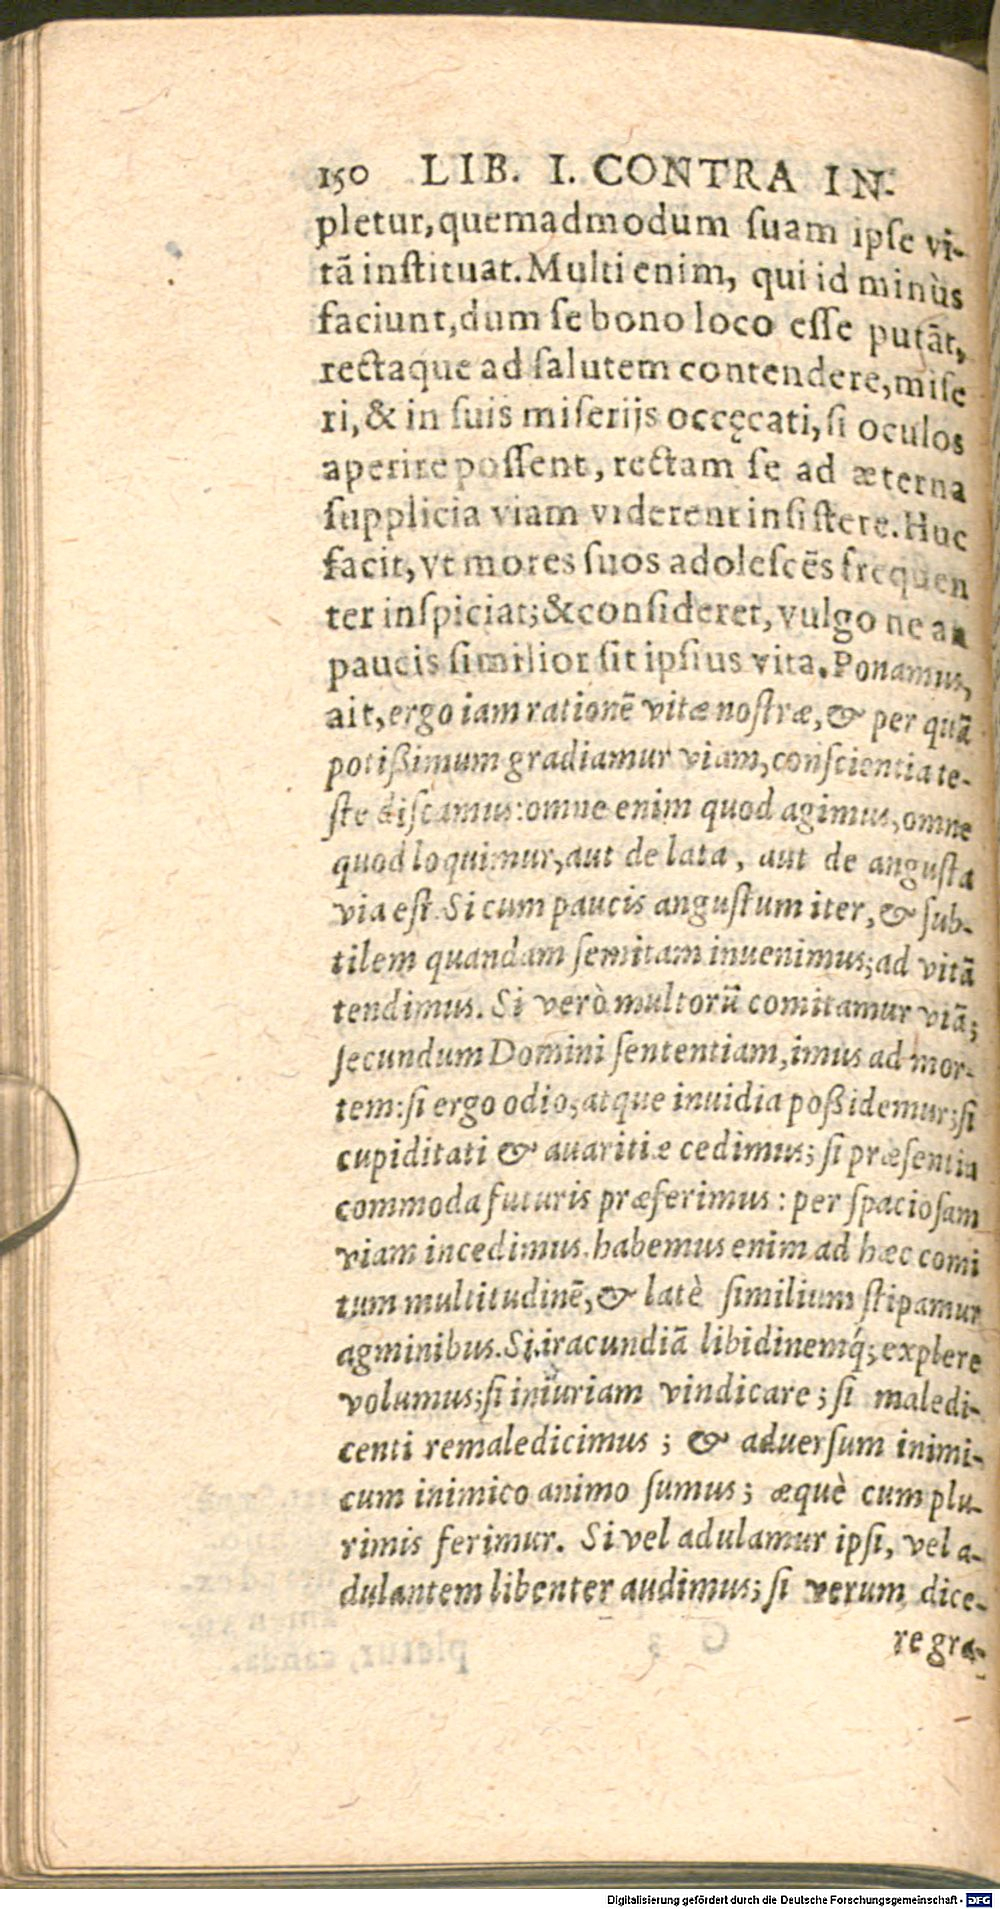 150 LIB. I. CONTRA IN-
pletur, quemadmodum ſuam ipſe vi-
tā inſtituat. Multi enim, qui id minùs
faciunt, dum ſe bono loco eſſe putāt,
rectaque ad ſalutem contendere, miſe
ri, & in ſuis miſerijs occęcati, ſi oculos
aperire poſſent, rectam ſe ad æterna
ſupplicia viam viderent inſiſtere. Huc
facit, vt mores ſuos adoleſcēs frequen
ter inſpiciat; & conſideret, vulgo ne an
paucis ſimilior ſit ipſius vita. Ponamus,
ait, ergo iam rationē vitæ noſtræ, & per quā
potißimum gradiamur viam, conſcientia te-
ſte diſcamus: omne enim quod agimus, omne
quod loquimur, aut de lata, aut de anguſta
via eſt. Si cum paucis anguſtum iter, & ſub-
tilem quandam ſemitam inuenimus; ad vitā
tendimus. Si verò multorū comitamur viā;
ſecundum Domini ſententiam, imus ad mor-
tem: ſi ergo odio, atque inuidia poßidemur; ſi
cupiditati & auaritiæ cedimus; ſi præſentia
commoda futuris præferimus: per ſpacioſam
viam incedimus. habemus enim ad hæc comi
tum multitudinē, & latè ſimilium ſtipamur
agminibus. Si iracundiā libidinemq́; explere
volumus; ſi iniuriam vindicare; ſi maledi-
centi remaledicimus; & aduerſum inimi-
cum inimico animo ſumus; æquè cum plu-
rimis ferimur. Si vel adulamur ipſi, vel a-
dulantem libenter audimus; ſi verum dice-
re gra-
Digitalisierung gefördert durch die Deutsche Forschungsgemeinschaft - DFG